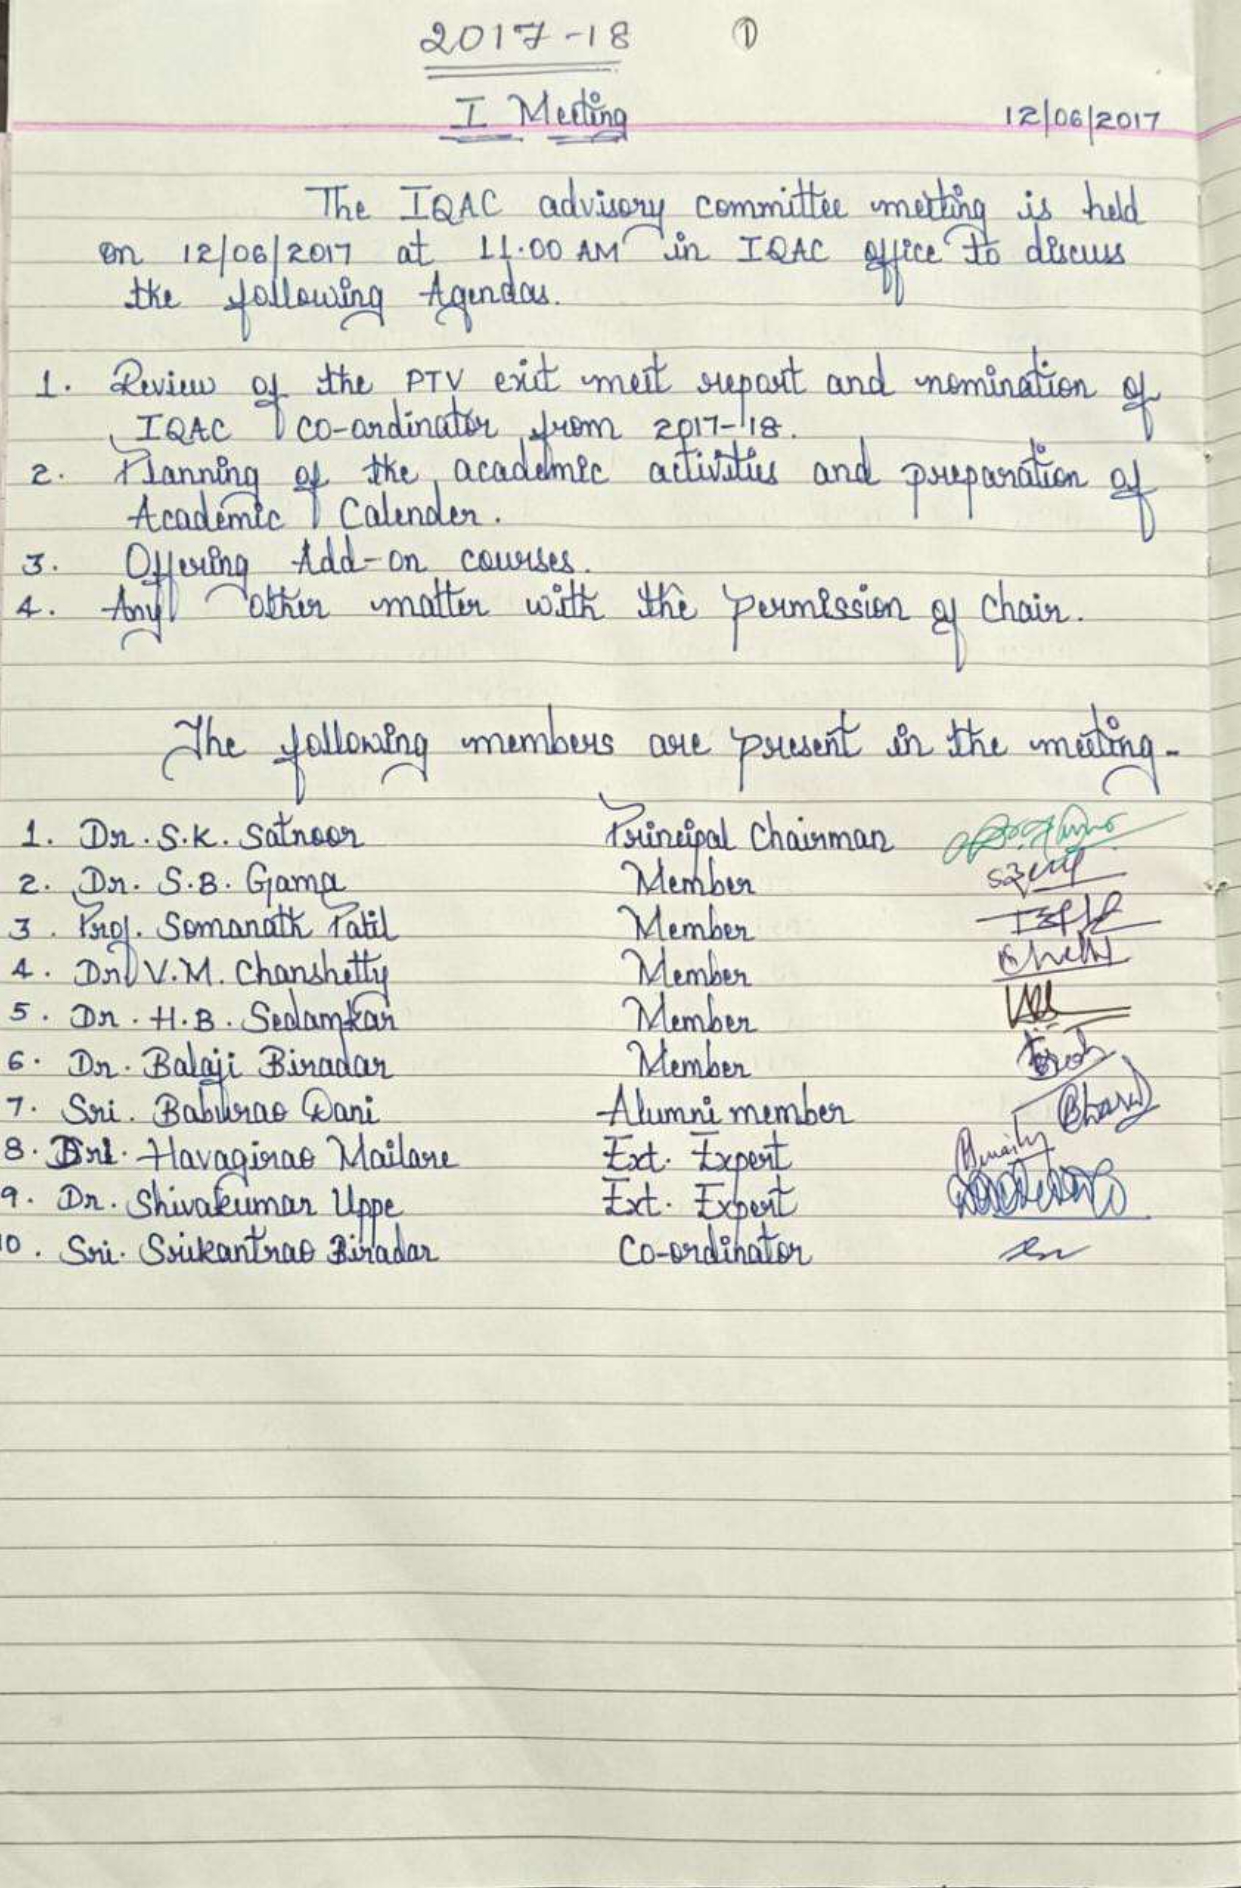 2017-18 ①
I Meeting
12/06/2017
The IQAC advisory committee meeting is held
on 12/06/2017 at 11.00 AM in IQAC office to discuss
the following Agendas.
1. Review of the PTV exit meet report and nomination of
IQAC co-ordinator from 2017-18.
2. Planning of the academic activities and preparation of
Academic Calender.
3. Offering Add-on courses.
4. Any other matter with the permission of chair.
The following members are present in the meeting-
1. Dr. S.K. Satnoor Principal Chairman
2. Dr. S.B. Gama Member
3. Prof. Somanath Patil Member
4. Dr. V.M. Chanshetty Member
5. Dr. H.B. Sedamkar Member
6. Dr. Balaji Biradar Member
7. Sri. Baburao Dani Alumni member
8. Havagirao Mailare Ext. Expert
9. Dr. Shivakumar Uppe Ext. Expert
10. Sri. Srikantrao Biradar Co-ordinator